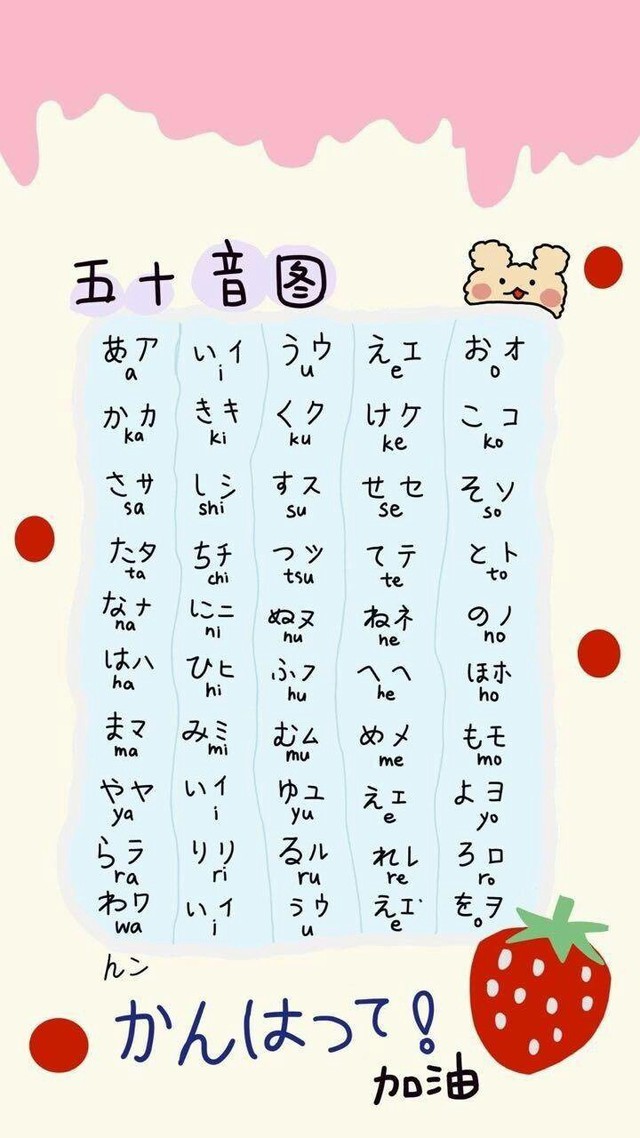 五十音图
あア いイ うウ えエ おオ
a i u e o
かカ きキ くク けケ こコ
ka ki ku ke ko
さサ しシ すス せセ そソ
sa shi su se so
たタ ちチ つツ てテ とト
ta chi tsu te to
なナ にニ ぬヌ ねネ のノ
na ni nu ne no
はハ ひヒ ふフ へヘ ほホ
ha hi hu he ho
まマ みミ むム めメ もモ
ma mi mu me mo
やヤ いイ ゆユ えエ よヨ
ya i yu e yo
らラ りリ るル れレ ろロ
ra ri ru re ro
わワ いイ うウ えエ をヲ
wa i u e o
んン
かんはって!
加油